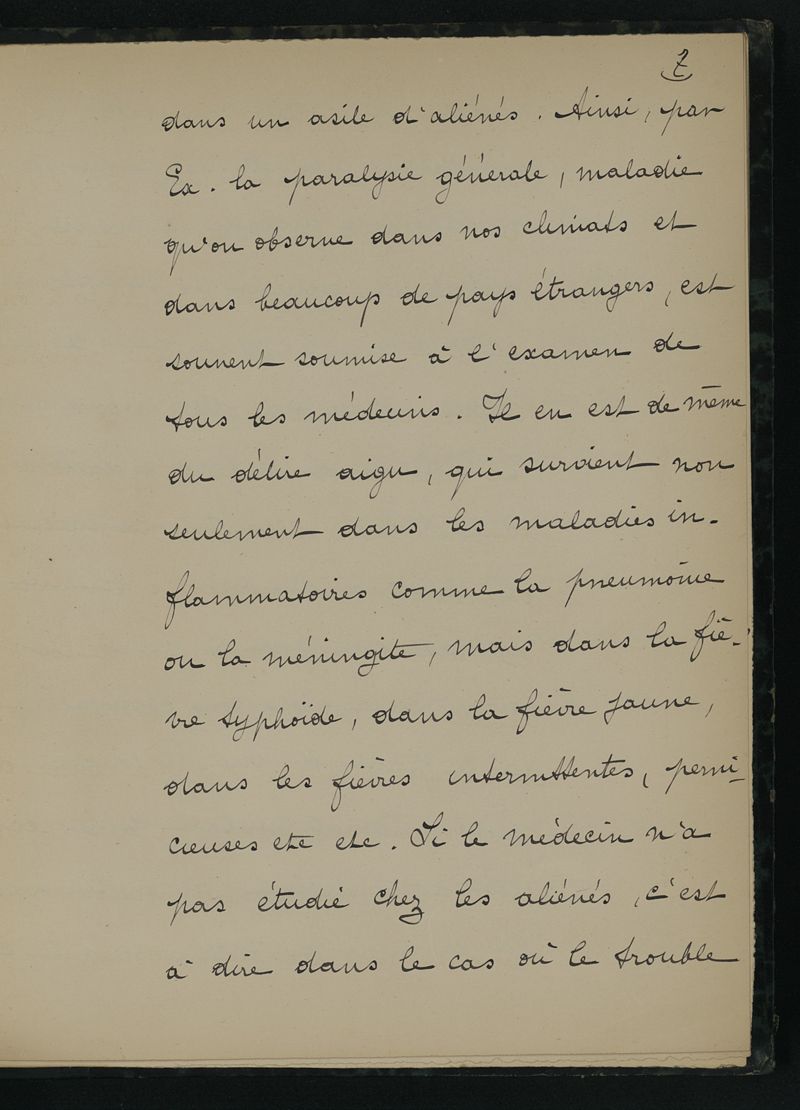 7
dans un asile d'aliénés. Ainsi, par
Ex. la paralysie générale, maladie
qu'on observe dans nos climats et
dans beaucoup de pays étrangers, est
souvent soumise à l'examen de
tous les médecins. Il en est de même
du délire aigu, qui survient non
seulement dans les maladies in-
flammatoires comme la pneumonie
ou la méningite, mais dans la fiè-
vre typhoïde, dans la fièvre jaune,
dans les fièvres intermittentes, perni-
cieuses etc etc. Si le médecin n'a
pas étudié chez les aliénés, c'est
à dire dans le cas où le trouble